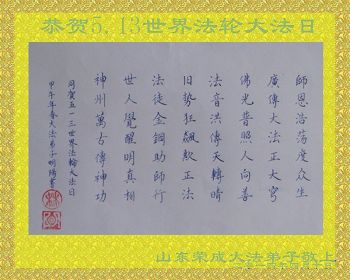 恭贺5.13世界法轮大法日
師恩浩荡度众生
廣傳大法正大穹
佛光普照人向善
法音洪傳天轉晴
旧势狂飙正法
法徒金剛助师行
世人覺醒明真相
神州萬古傳神功
同賀五一三世界法輪大法日
甲午年春大法弟子明書
山东荣成大法弟子敬上